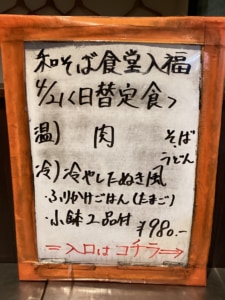 和そば食堂入福
4/21<日替定食>
温) 肉 そば
うどん
冷) 冷やしたぬき風
・ふりかけごはん(たまご)
・小鉢2品付
¥980.-
=入口はコチラ⇒